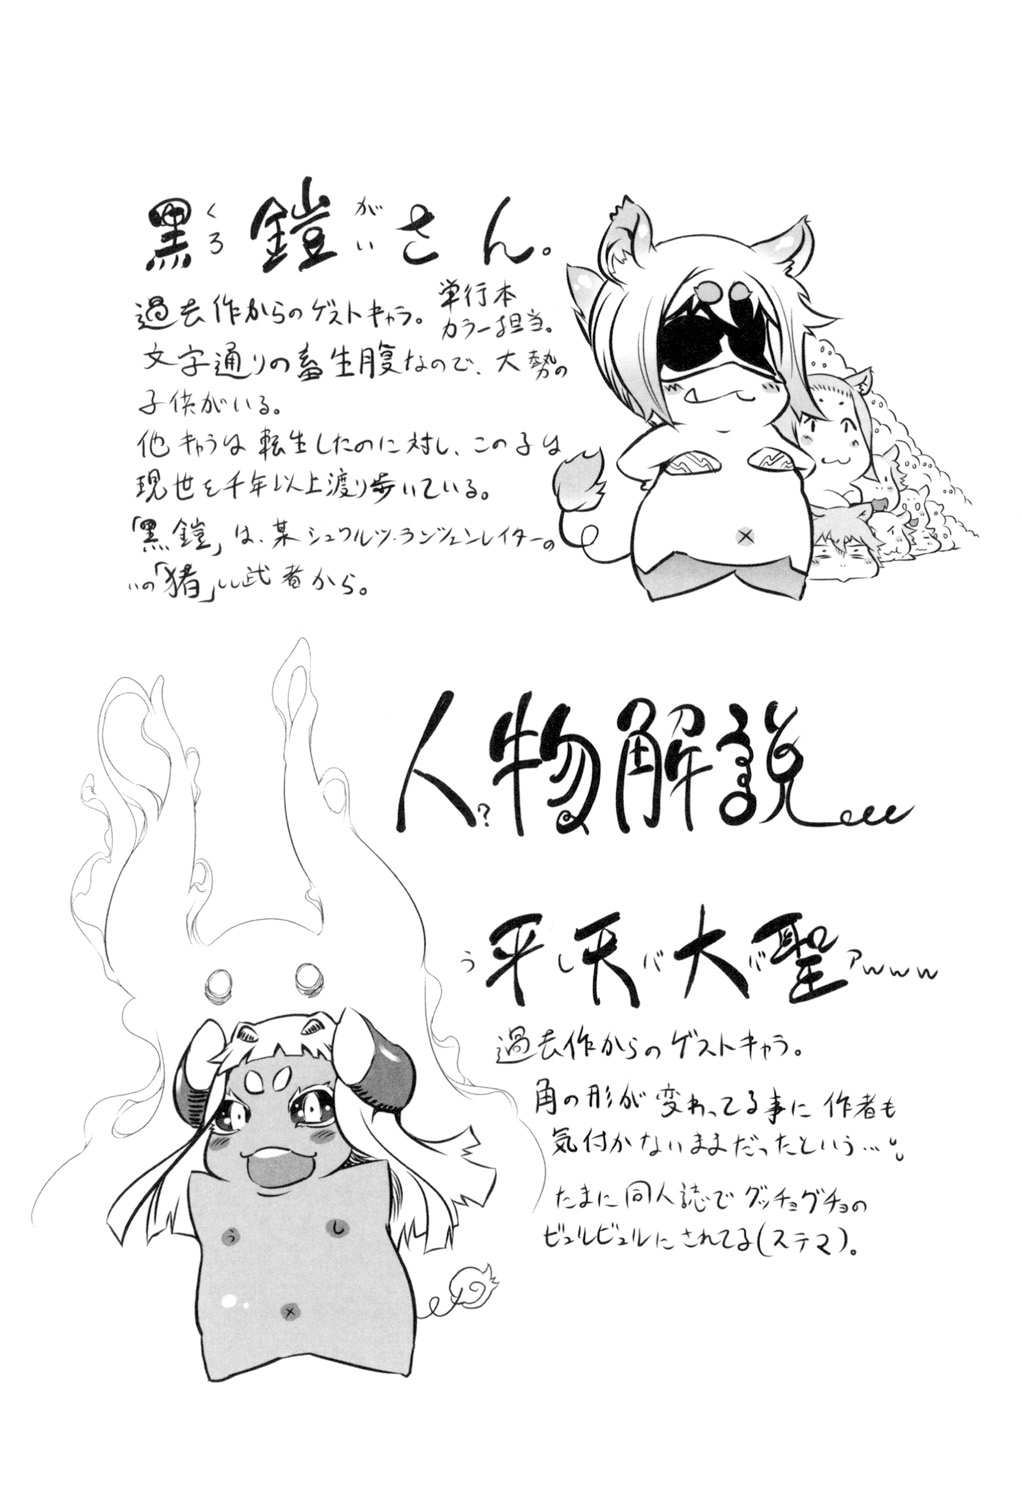 黒鎧さん。
くろ がい
過去作からのゲストキャラ。
単行本
カラー担当。
文字通りの畜生腹なので、大勢の
子供がいる。
他キャラは転生したのに対し、この子は
現世を千年以上渡り歩いている。
「黒鎧」は、某シュワルツ・ランツェンレイターの
"の「猪」い武者から。
人?物解説
う平し天バ大バ聖アwww
過去作からのゲストキャラ。
角の形が変わってる事に作者も
気付かないままだったという…。
たまに同人誌でグッチョグチョの
ビュルビュルにされてる(ステマ)。
う
し